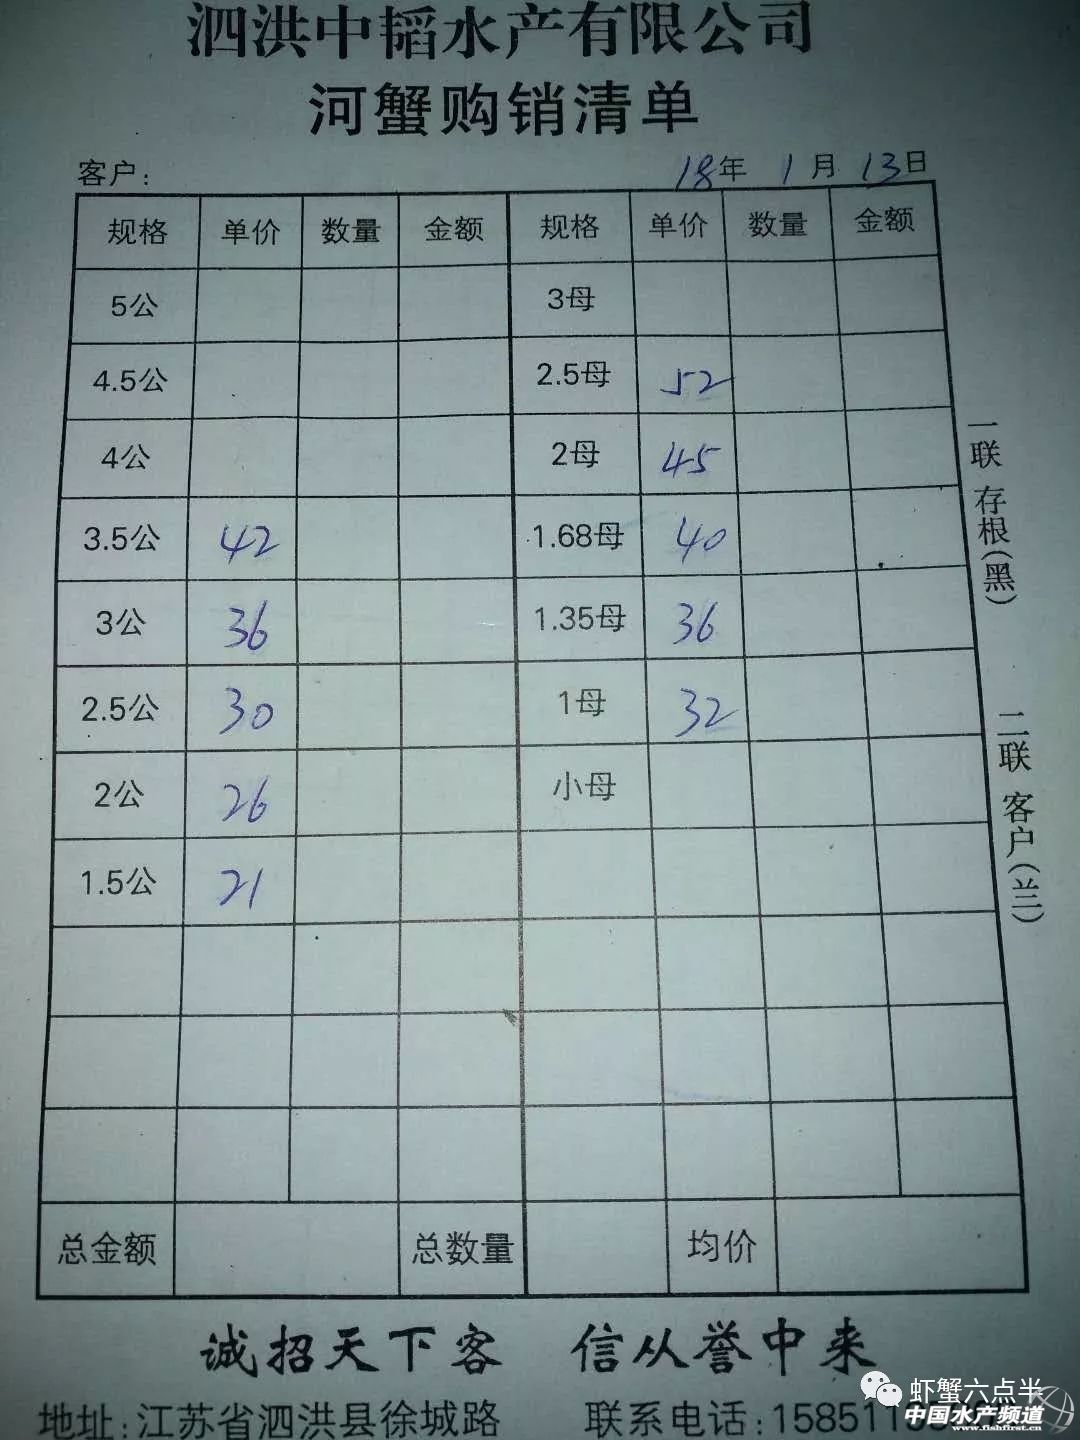 泗洪中韬水产有限公司
河蟹购销清单
客户: 18年 1月 13日
规格 单价 数量 金额 规格 单价 数量 金额
5公 3母
4.5公 2.5母 52
4公 2母 45
3.5公 42 1.68母 40
3公 36 1.35母 36
2.5公 30 1母 32
2公 26 小母
1.5公 21
总金额 总数量 均价
一联 存根(黑) 二联 客户(兰)
诚招天下客 信从誉中来
地址:江苏省泗洪县徐城路 联系电话:15851
虾蟹六点半
中国水产频道
www.fishfirst.cn